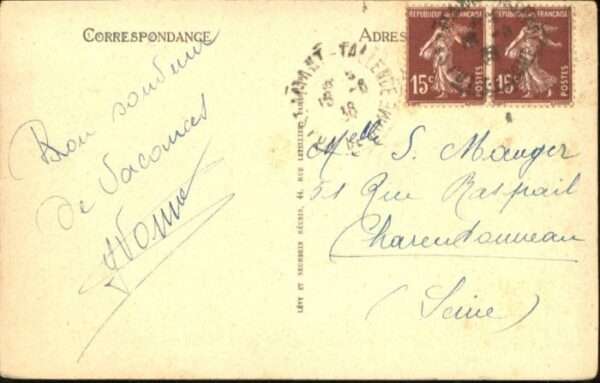 CORRESPONDANCE
ADRES
RÉPUBLIQUE FRANÇAISE
15c
POSTES
RÉPUBLIQUE FRANÇAISE
15c
POSTES
Bon souvenir
de Vacances
Yvonne
LÉVY ET NEURDEIN RÉUNIS, 44, RUE LETELLIER, PARIS
Melle S. Mauger
51 Rue Raspail
Charentonneau
(Seine)